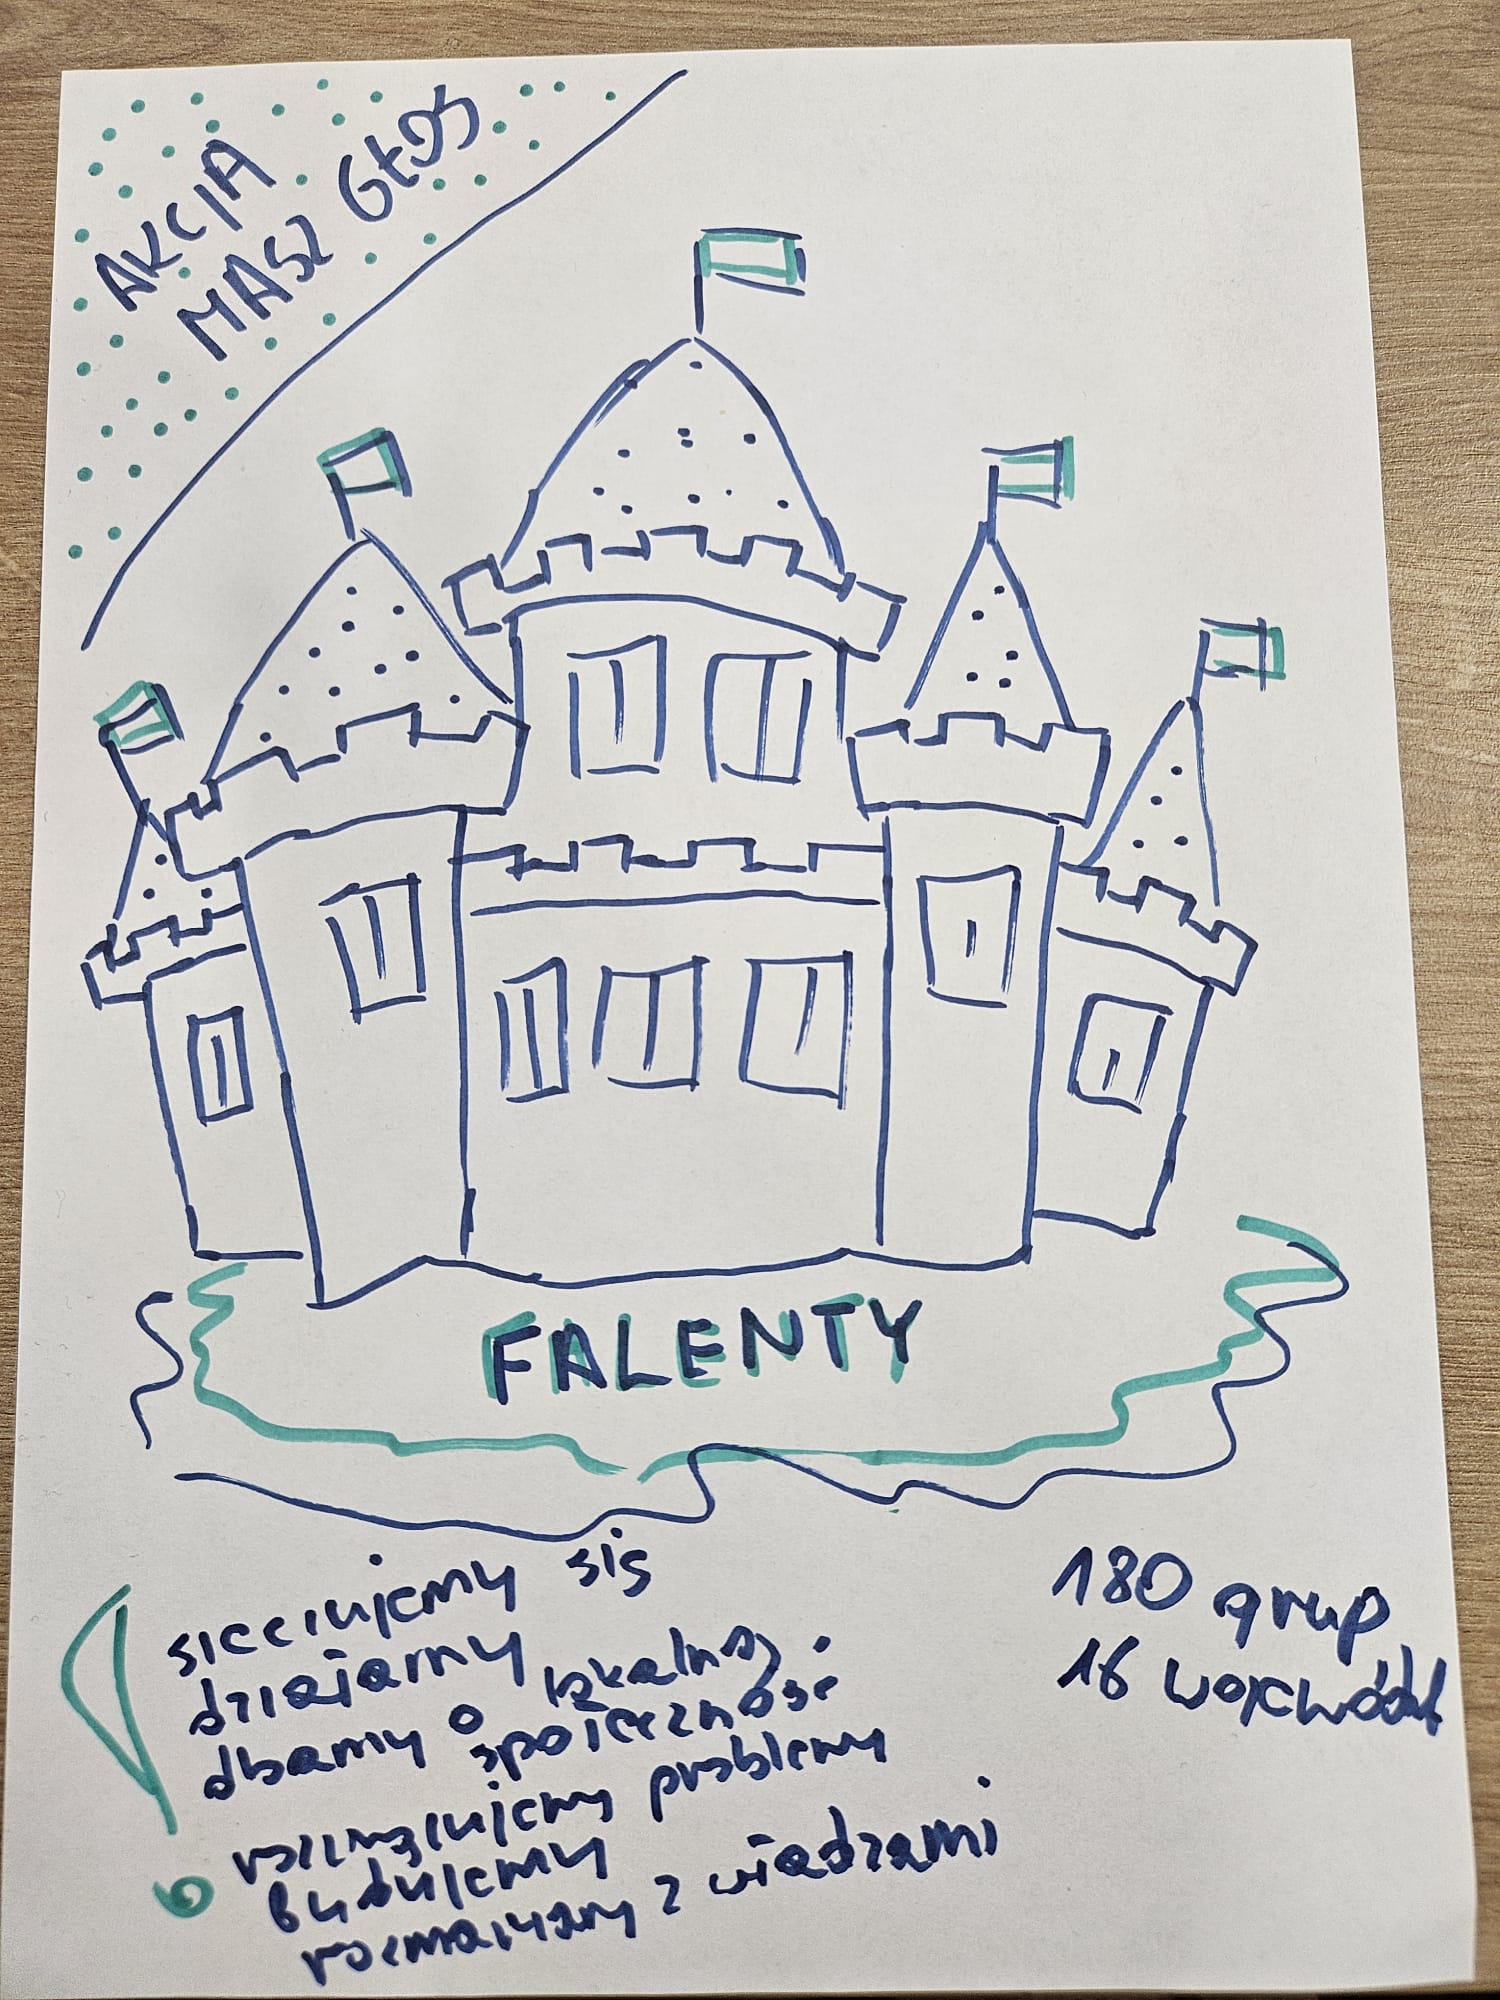 AKCJA
MASZ GŁOS
FALENTY
sieciujemy się
działamy
dbamy o lokalną
społeczność
rozwiązujemy problemy
budujemy
rozmawiamy z władzami
180 grup
16 wojewódz